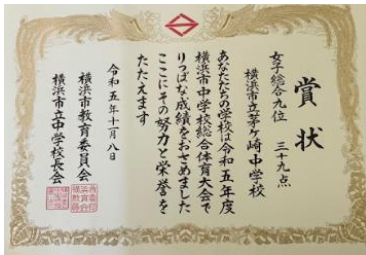 賞状
女子総合九位 三十九点
横浜市立茅ケ崎中学校
あなたたちの学校は令和五年度
横浜市中学校総合体育大会で
りっぱな成績をおさめました
ここにその努力と栄誉を
たたえます
令和五年十一月八日
横浜市教育委員会
横浜市立中学校長会